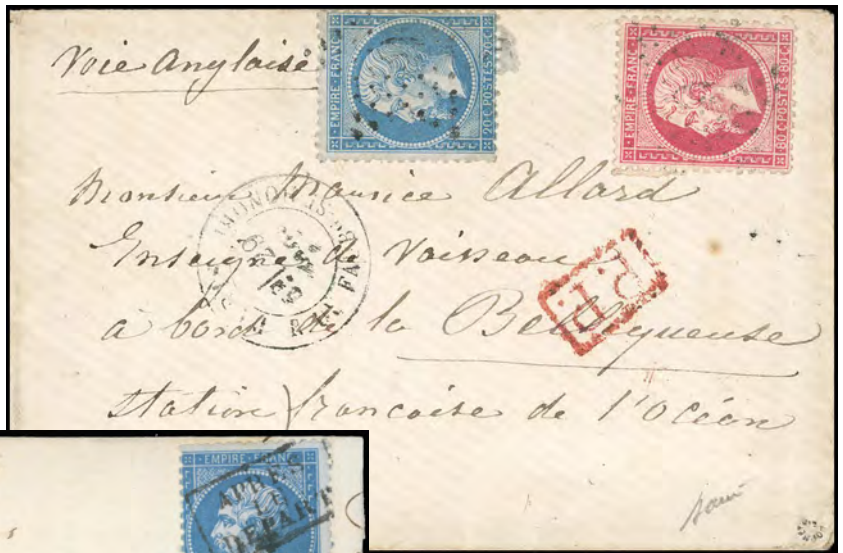 Voie Anglaise
EMPIRE FRANC
20 C POSTES 20 C
EMPIRE FRANC
80 C POSTES 80 C
Monsieur Maurice Allard
Enseigne de Vaisseau
P.P.
à bord de la Belliqueuse
station française de l'Océan
EMPIRE FRANC
APRÈS
LE
DÉPART